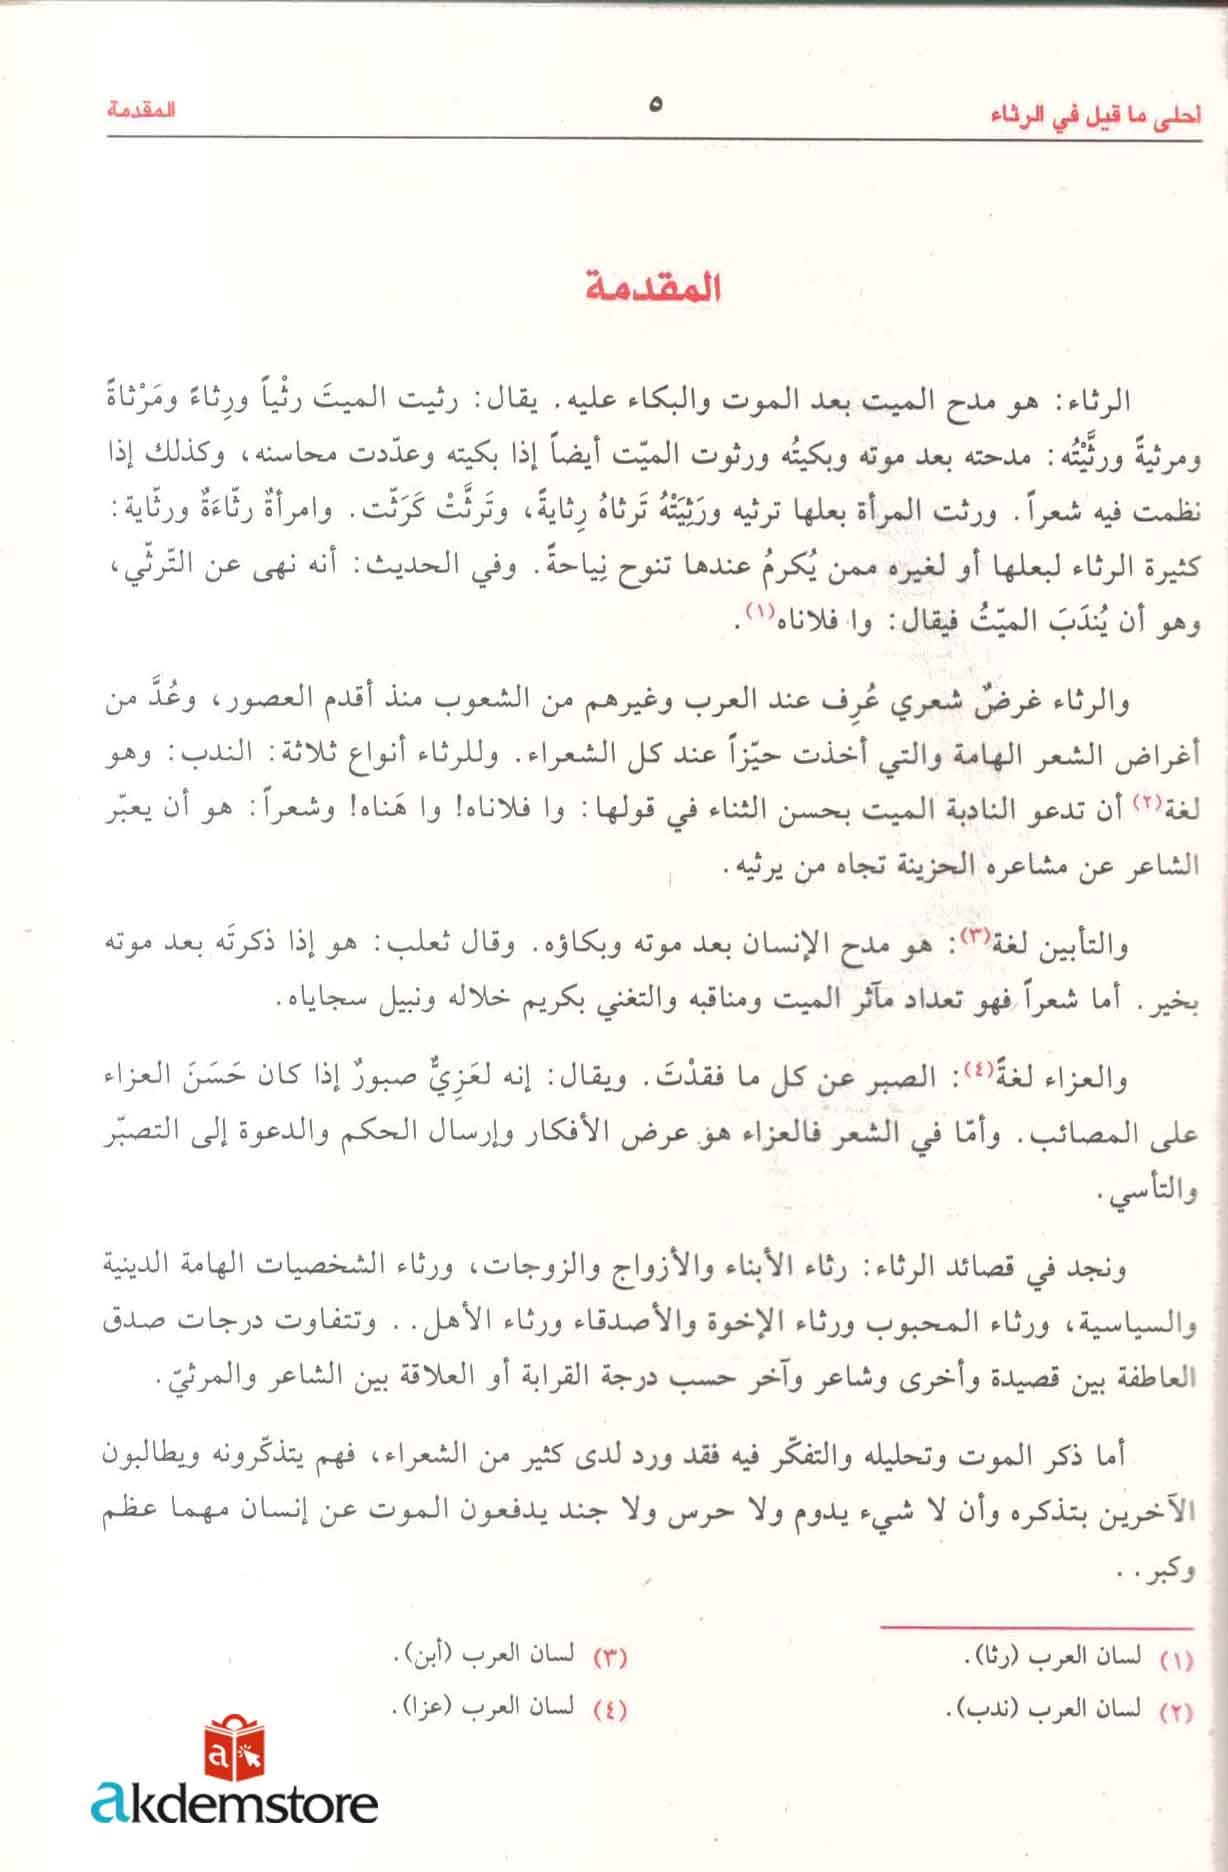 أحلى ما قيل في الرثاء
٥
المقدمة
المقدمة
الرثاء: هو مدح الميت بعد الموت والبكاء عليه. يقال: رثيت الميتَ رثْياً ورِثاءً ومَرْثاةً
ومرثيةً ورثَّيْتُه: مدحته بعد موته وبكيتُه ورثوت الميّت أيضاً إذا بكيته وعدّدت محاسنه، وكذلك إذا
نظمت فيه شعراً. ورثت المرأة بعلها ترثيه ورَثِيَتْهُ تَرثاهُ رِثايةً، وتَرثَّتْ كَرَثّت. وامرأةٌ رثّاءَةٌ ورثّاية:
كثيرة الرثاء لبعلها أو لغيره ممن يُكرمُ عندها تنوح نِياحةً. وفي الحديث: أنه نهى عن التّرثّي،
وهو أن يُندَبَ الميّتُ فيقال: وا فلاناه(١).
والرثاء غرضٌ شعري عُرِف عند العرب وغيرهم من الشعوب منذ أقدم العصور، وعُدَّ من
أغراض الشعر الهامة والتي أخذت حيّزاً عند كل الشعراء. وللرثاء أنواع ثلاثة: الندب: وهو
لغة(٢) أن تدعو النادبة الميت بحسن الثناء في قولها: وا فلاناه! وا هَناه! وشعراً: هو أن يعبّر
الشاعر عن مشاعره الحزينة تجاه من يرثيه.
والتأبين لغة(٣): هو مدح الإنسان بعد موته وبكاؤه. وقال ثعلب: هو إذا ذكرتَه بعد موته
بخير. أما شعراً فهو تعداد مآثر الميت ومناقبه والتغني بكريم خلاله ونبيل سجاياه.
والعزاء لغةً(٤): الصبر عن كل ما فقدْتَ. ويقال: إنه لعَزِيٌّ صبورٌ إذا كان حَسَنَ العزاء
على المصائب. وأمّا في الشعر فالعزاء هو عرض الأفكار وإرسال الحكم والدعوة إلى التصبّر
والتأسي.
ونجد في قصائد الرثاء: رثاء الأبناء والأزواج والزوجات، ورثاء الشخصيات الهامة الدينية
والسياسية، ورثاء المحبوب ورثاء الإخوة والأصدقاء ورثاء الأهل.. وتتفاوت درجات صدق
العاطفة بين قصيدة وأخرى وشاعر وآخر حسب درجة القرابة أو العلاقة بين الشاعر والمرثيّ.
أما ذكر الموت وتحليله والتفكّر فيه فقد ورد لدى كثير من الشعراء، فهم يتذكّرونه ويطالبون
الآخرين بتذكره وأن لا شيء يدوم ولا حرس ولا جند يدفعون الموت عن إنسان مهما عظم
وكبر..
(١) لسان العرب (رثا).
(٢) لسان العرب (ندب).
(٣) لسان العرب (أبن).
(٤) لسان العرب (عزا).
a
akdemstore